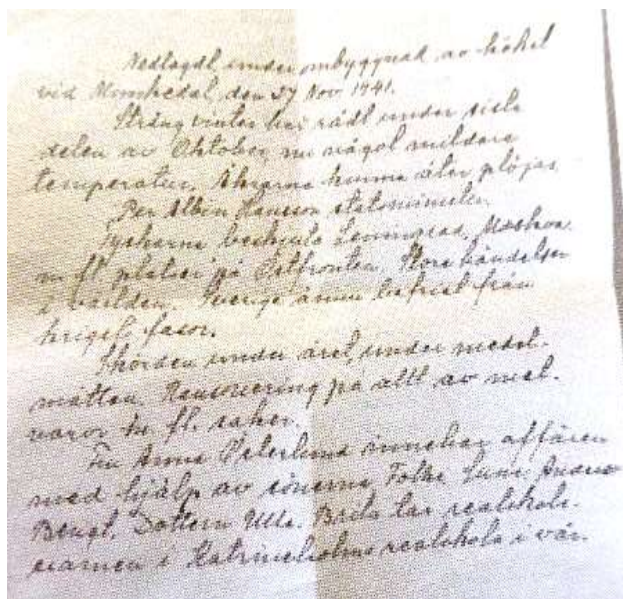 Nedlagdt under ombyggnad av köket
vid Mon‌hedal, den 27 Nov. 1941.
Sträng vinter har rådt under sista
delen av Oktober, nu något mildare
temperatur. Åkrarna kunna åter plöjas.
Per Albin Hansson statsminister.
Tyskarna beskjuta Leningrad, Moskva
m fl. platser på Östfronten. Stora händelser
i världen. Sverige ännu befriat från
kriget fasor.
Skörden under året under medel-
måttan. Ransonering på allt av mat-
varor m. fl. saker.
Fru Anna Österlund innehar affären
med hjälp av sönerna Folke Anders
Bengt. Dottern Ulla. tar realskole-
examen i Katrineholms realskola i vår.